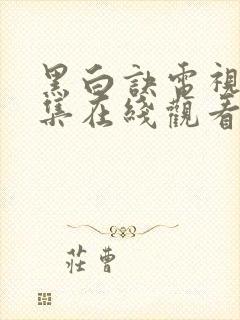 黑白訣電視
集在綫觀看
莊曹